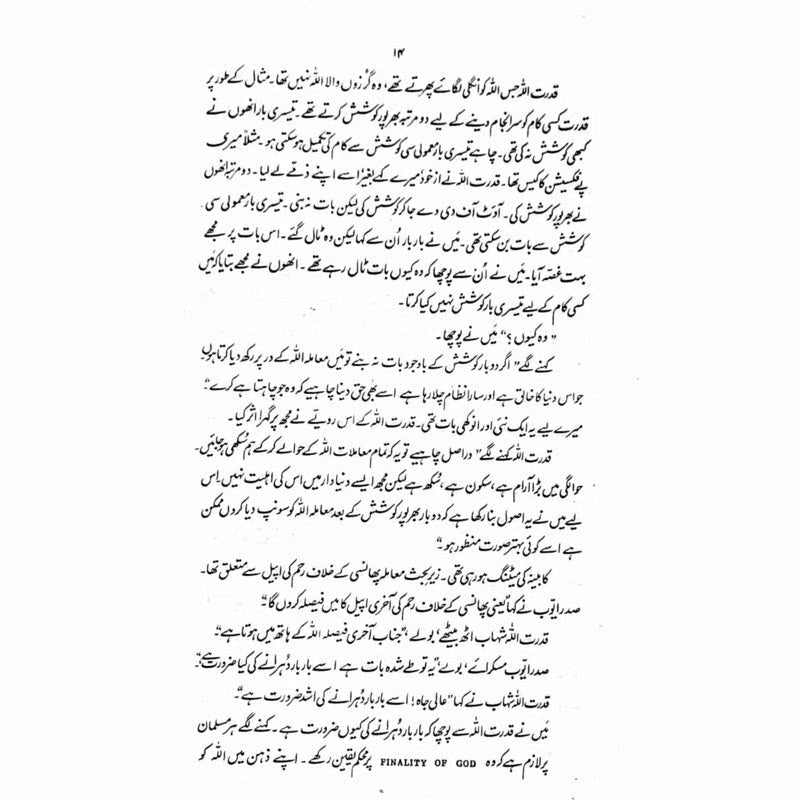 ۱۴
قدرت اللہ جس اللہ کو انگلی لگائے پھرتے تھے، وہ گرزوں والا اللہ نہیں تھا۔ مثال کے طور پر
قدرت کسی کام کو سرانجام دینے کے لیے دو مرتبہ بھرپور کوشش کرتے تھے۔ تیسری بار انھوں نے
کبھی کوشش نہ کی تھی۔ چاہے تیسری بار معمولی سی کوشش سے کام کی تکمیل ہو سکتی ہو۔ مثلاً میری
پے فکسیشن کا کیس تھا۔ قدرت اللہ نے از خود میرے کہے بغیر اسے اپنے ذمے لے لیا۔ دو مرتبہ انھوں
نے بھرپور کوشش کی۔ آؤٹ آف دی وے جا کر کوشش کی لیکن بات نہ بنی۔ تیسری بار معمولی سی
کوشش سے بات بن سکتی تھی۔ میں نے بار بار اُن سے کہا لیکن وہ ٹال گئے۔ اس بات پر مجھے
بہت غصہ آیا۔ میں نے اُن سے پوچھا کہ وہ کیوں بات ٹال رہے تھے۔ انھوں نے مجھے بتایا کہ میں
کسی کام کے لیے تیسری بار کوشش نہیں کیا کرتا۔
”وہ کیوں؟“ میں نے پوچھا۔
کہنے لگے ”اگر دو بار کوشش کے باوجود بات نہ بنے تو میں معاملہ اللہ کے در پر رکھ دیا کرتا ہوں
جو اس دنیا کا خالق ہے اور سارا نظام چلا رہا ہے اسے بھی حق دینا چاہیے کہ وہ جو چاہتا ہے کرے“۔
میرے لیے یہ ایک نئی اور انوکھی بات تھی۔ قدرت اللہ کے اس رویے نے مجھ پر گہرا اثر کیا۔
قدرت اللہ کہنے لگے ”دراصل چاہیے تو یہ کہ تمام معاملات اللہ کے حوالے کر کے ہم سُکھی ہو جائیں۔
حوالگی میں بڑا آرام ہے، سکون ہے، سُکھ ہے لیکن مجھ ایسے دنیا دار میں اس کی اہلیت نہیں۔ اِس
لیے میں نے یہ اصول بنا رکھا ہے کہ دو بار بھرپور کوشش کے بعد معاملہ اللہ کو سونپ دیا کروں ممکن
ہے اسے کوئی بہتر صورت منظور ہو۔“
کابینہ کی میٹنگ ہو رہی تھی۔ زیر بحث معاملہ پھانسی کے خلاف رحم کی اپیل سے متعلق تھا۔
صدر ایوب نے کہا ”یعنی پھانسی کے خلاف رحم کی آخری اپیل کا میں فیصلہ کروں گا“۔
قدرت اللہ شہاب اٹھ بیٹھے، بولے، ”جناب آخری فیصلہ اللہ کے ہاتھ میں ہوتا ہے“۔
صدر ایوب مسکرائے، بولے، ”یہ تو طے شدہ بات ہے اسے بار بار دُہرانے کی کیا ضرورت ہے“۔
قدرت اللہ شہاب نے کہا ”عالی جاہ! اسے بار بار دُہرانے کی اشد ضرورت ہے“۔
میں نے قدرت اللہ سے پوچھا کہ بار بار دُہرانے کی کیوں ضرورت ہے۔ کہنے لگے ہر مسلمان
پر لازم ہے کہ وہ FINALITY OF GOD پر محکم یقین رکھے۔ اپنے ذہن میں اللہ کو